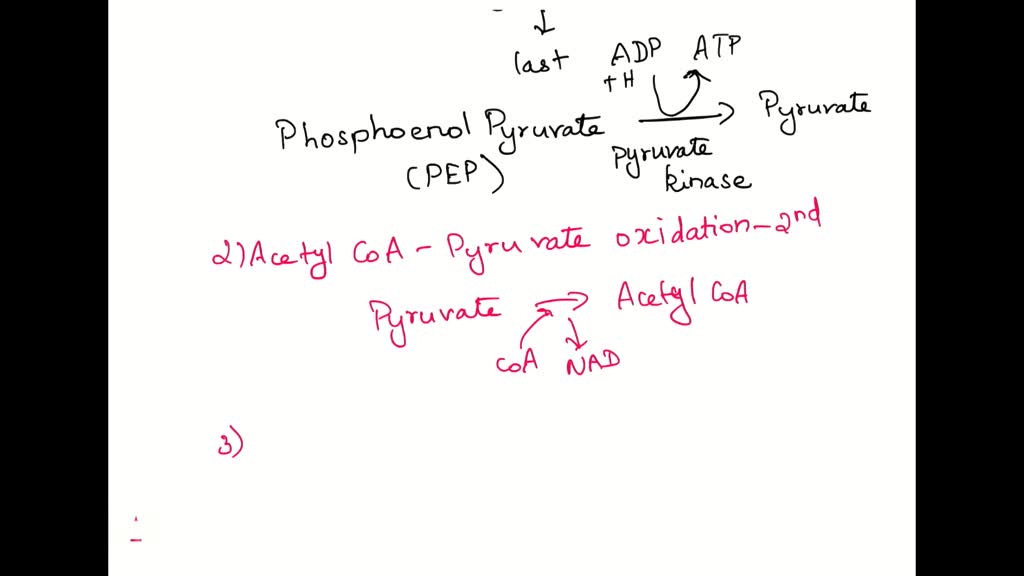 last ADP ATP
+H
Phosphoenol Pyruvate Pyruvate
(PEP) Pyruvate
kinase
2) Acetyl CoA - Pyruvate oxidation - 2nd
Pyruvate Acetyl CoA
CoA NAD
3)